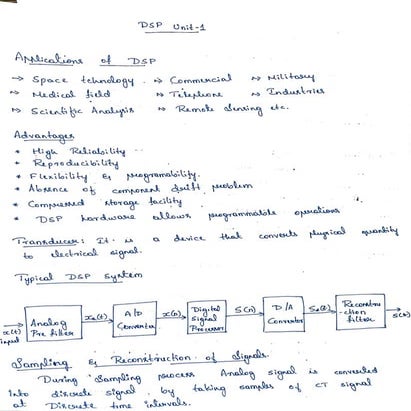 DSP Unit-1
Applications of DSP
→ Space tehnology → Commercial → Military
→ Medical field → Telephone → Industries
→ Scientific Analysis → Remote sensing etc.
Advantages
* High Reliability
* Reproducibility
* Flexibility & programability.
* Absence of component drift problem
* Compressed storage facility
* DSP hardware allows programmable operations
Transducer: It is a device that converts physical quantity
to electrical signal.
Typical DSP System
x(t) input
Analog Pre filter
xa(t)
A/D Converter
x(n)
Digital Signal Processor
S(n)
D/A Convertor
Sa(t)
Reconstruction filter
s(t)
Sampling & Reconstruction of Signals.
During Sampling process Analog signal is converted
into discrete signal by taking samples of CT signal
at Discrete time intervals.